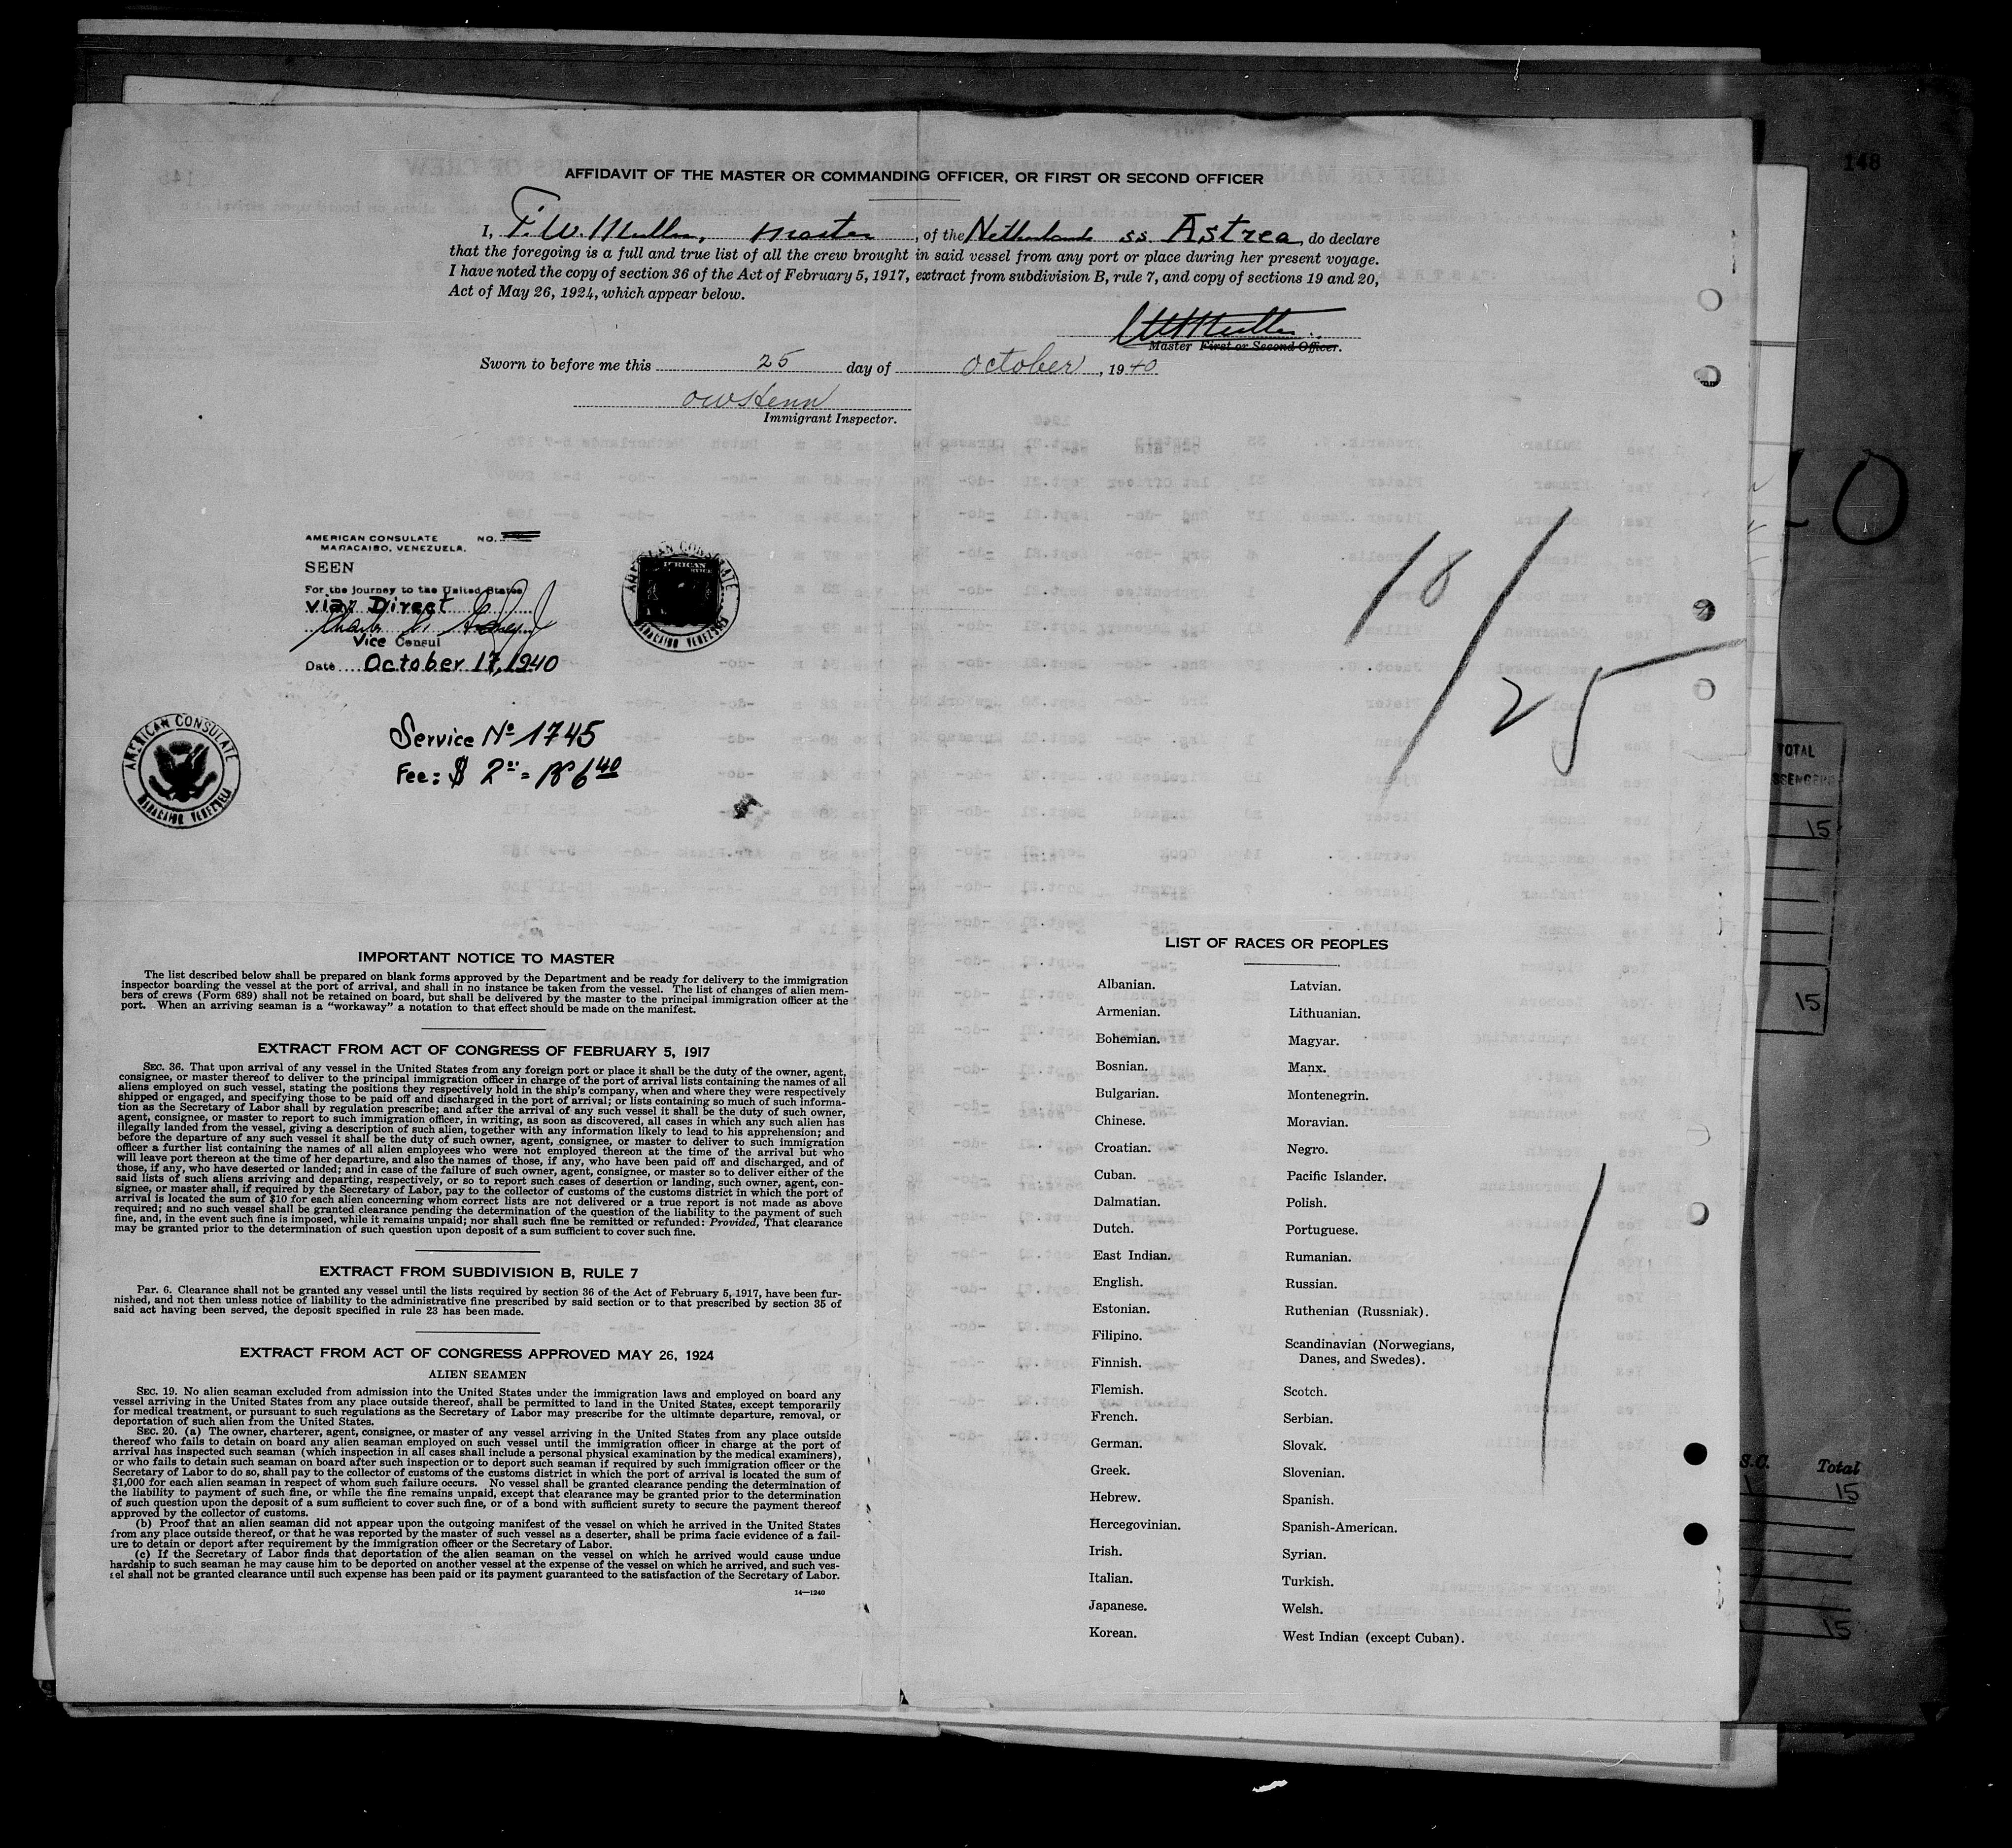 148
AFFIDAVIT OF THE MASTER OR COMMANDING OFFICER, OR FIRST OR SECOND OFFICER
I, F. W. Muller, master, of the Netherlands ss Astrea, do declare
that the foregoing is a full and true list of all the crew brought in said vessel from any port or place during her present voyage.
I have noted the copy of section 36 of the Act of February 5, 1917, extract from subdivision B, rule 7, and copy of sections 19 and 20,
Act of May 26, 1924, which appear below.
Master First or Second Officer.
Sworn to before me this 25 day of October, 1940
Immigrant Inspector.
AMERICAN CONSULATE NO.
MARACAIBO, VENEZUELA.
SEEN
For the journey to the United States
via: Direct
Vice Consul
Date October 17, 1940
AMERICAN CONSULATE
MARACAIBO VENEZUELA
10/25
AMERICAN CONSULATE
MARACAIBO VENEZUELA
Service No 1745
Fee: $ 2
TOTAL
15
15
IMPORTANT NOTICE TO MASTER
The list described below shall be prepared on blank forms approved by the Department and be ready for delivery to the immigration
inspector boarding the vessel at the port of arrival, and shall in no instance be taken from the vessel. The list of changes of alien mem-
bers of crews (Form 689) shall not be retained on board, but shall be delivered by the master to the principal immigration officer at the
port. When an arriving seaman is a "workaway" a notation to that effect should be made on the manifest.
EXTRACT FROM ACT OF CONGRESS OF FEBRUARY 5, 1917
SEC. 36. That upon arrival of any vessel in the United States from any foreign port or place it shall be the duty of the owner, agent,
consignee, or master thereof to deliver to the principal immigration officer in charge of the port of arrival lists containing the names of all
aliens employed on such vessel, stating the positions they respectively hold in the ship's company, when and where they were respectively
shipped or engaged, and specifying those to be paid off and discharged in the port of arrival; or lists containing so much of such informa-
tion as the Secretary of Labor shall by regulation prescribe; and after the arrival of any such vessel it shall be the duty of such owner,
agent, consignee, or master to report to such immigration officer, in writing, as soon as discovered, all cases in which any such alien has
illegally landed from the vessel, giving a description of such alien, together with any information likely to lead to his apprehension; and
before the departure of any such vessel it shall be the duty of such owner, agent, consignee, or master to deliver to such immigration
officer a further list containing the names of all alien employees who were not employed thereon at the time of the arrival but who
will leave port thereon at the time of her departure, and also the names of those, if any, who have been paid off and discharged, and of
those, if any, who have deserted or landed; and in case of the failure of such owner, agent, consignee, or master so to deliver either of the
said lists of such aliens arriving and departing, respectively, or so to report such cases of desertion or landing, such owner, agent, con-
signee, or master shall, if required by the Secretary of Labor, pay to the collector of customs of the customs district in which the port of
arrival is located the sum of $10 for each alien concerning whom correct lists are not delivered or a true report is not made as above
required; and no such vessel shall be granted clearance pending the determination of the question of the liability to the payment of such
fine, and, in the event such fine is imposed, while it remains unpaid; nor shall such fine be remitted or refunded: Provided, That clearance
may be granted prior to the determination of such question upon deposit of a sum sufficient to cover such fine.
EXTRACT FROM SUBDIVISION B, RULE 7
Par. 6. Clearance shall not be granted any vessel until the lists required by section 36 of the Act of February 5, 1917, have been fur-
nished, and not then unless notice of liability to the administrative fine prescribed by said section or to that prescribed by section 35 of
said act having been served, the deposit specified in rule 23 has been made.
EXTRACT FROM ACT OF CONGRESS APPROVED MAY 26, 1924
ALIEN SEAMEN
SEC. 19. No alien seaman excluded from admission into the United States under the immigration laws and employed on board any
vessel arriving in the United States from any place outside thereof, shall be permitted to land in the United States, except temporarily
for medical treatment, or pursuant to such regulations as the Secretary of Labor may prescribe for the ultimate departure, removal, or
deportation of such alien from the United States.
SEC. 20. (a) The owner, charterer, agent, consignee, or master of any vessel arriving in the United States from any place outside
thereof who fails to detain on board any alien seaman employed on such vessel until the immigration officer in charge at the port of
arrival has inspected such seaman (which inspection in all cases shall include a personal physical examination by the medical examiners),
or who fails to detain such seaman on board after such inspection or to deport such seaman if required by such immigration officer or the
Secretary of Labor to do so, shall pay to the collector of customs of the customs district in which the port of arrival is located the sum of
$1,000 for each alien seaman in respect of whom such failure occurs. No vessel shall be granted clearance pending the determination of
the liability to payment of such fine, or while the fine remains unpaid, except that clearance may be granted prior to the determination
of such question upon the deposit of a sum sufficient to cover such fine, or of a bond with sufficient surety to secure the payment thereof
approved by the collector of customs.
(b) Proof that an alien seaman did not appear upon the outgoing manifest of the vessel on which he arrived in the United States
from any place outside thereof, or that he was reported by the master of such vessel as a deserter, shall be prima facie evidence of a fail-
ure to detain or deport after requirement by the immigration officer or the Secretary of Labor.
(c) If the Secretary of Labor finds that deportation of the alien seaman on the vessel on which he arrived would cause undue
hardship to such seaman he may cause him to be deported on another vessel at the expense of the vessel on which he arrived, and such ves-
sel shall not be granted clearance until such expense has been paid or its payment guaranteed to the satisfaction of the Secretary of Labor.
14—1240
LIST OF RACES OR PEOPLES
Albanian.
Armenian.
Bohemian.
Bosnian.
Bulgarian.
Chinese.
Croatian.
Cuban.
Dalmatian.
Dutch.
East Indian.
English.
Estonian.
Filipino.
Finnish.
Flemish.
French.
German.
Greek.
Hebrew.
Hercegovinian.
Irish.
Italian.
Japanese.
Korean.
Latvian.
Lithuanian.
Magyar.
Manx.
Montenegrin.
Moravian.
Negro.
Pacific Islander.
Polish.
Portuguese.
Rumanian.
Russian.
Ruthenian (Russniak).
Scandinavian (Norwegians,
Danes, and Swedes).
Scotch.
Serbian.
Slovak.
Slovenian.
Spanish.
Spanish-American.
Syrian.
Turkish.
Welsh.
West Indian (except Cuban).
S.C. Total
15
15